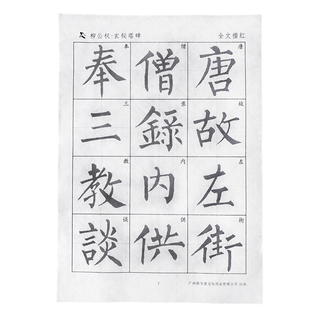 柳公权·玄秘塔碑
全文描红
唐故左街
僧錄内供
奉三教談
唐
故
左
街
僧
录
内
供
奉
三
教
谈
1